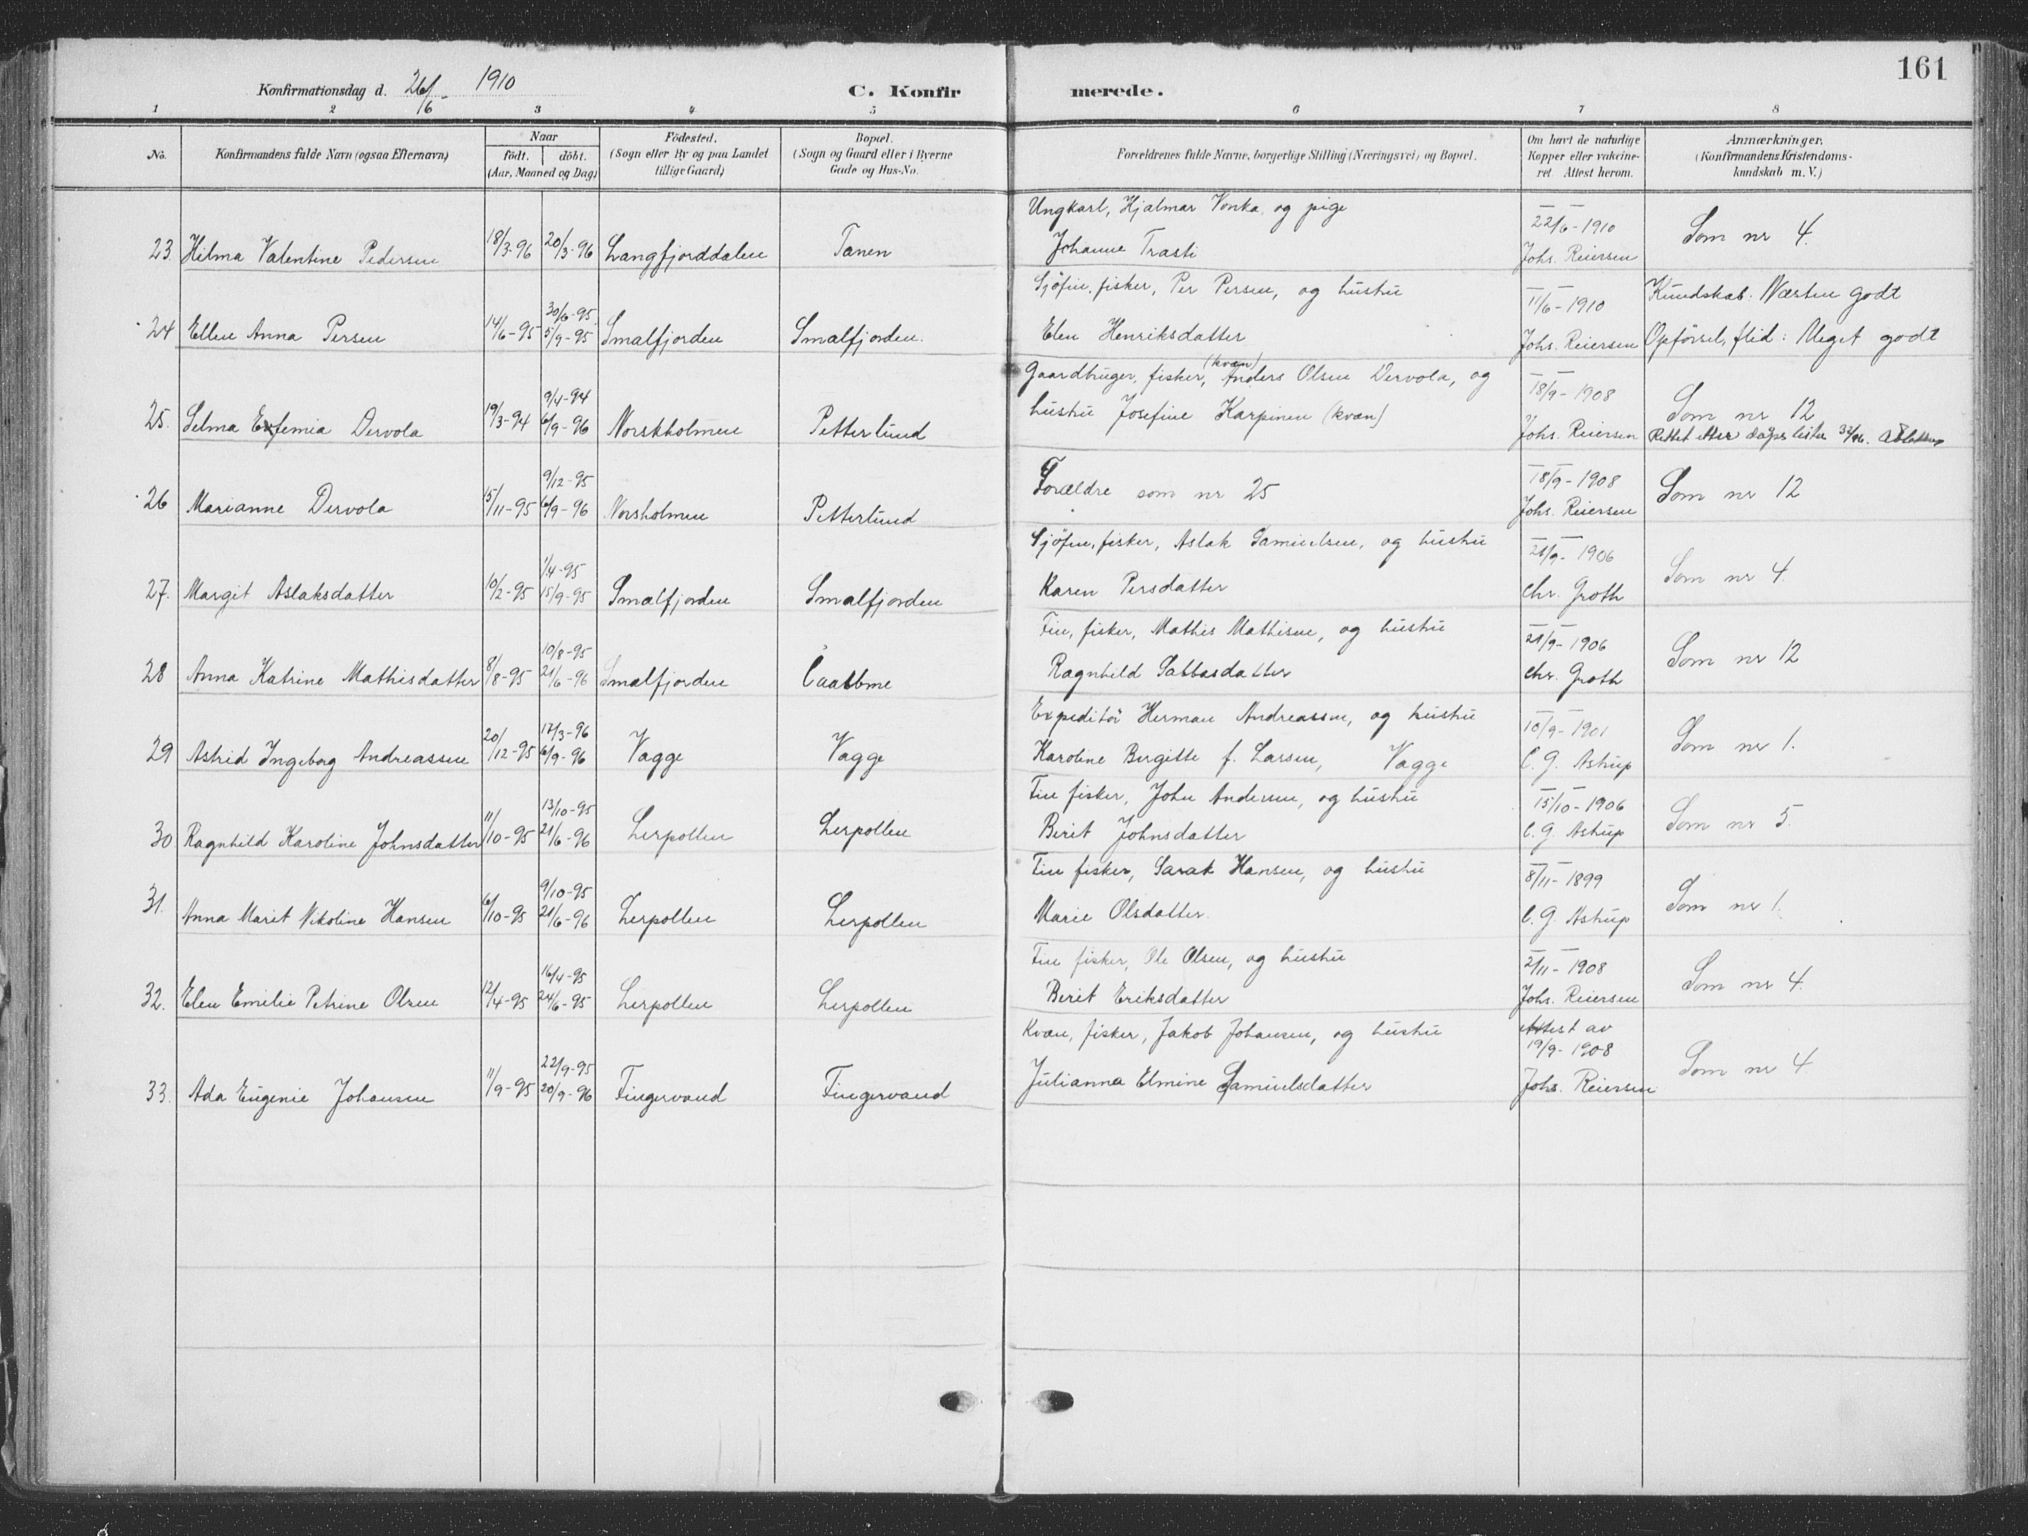 161
Konfirmationsdag d. 26/6 - 1910
C. Konfirmerede.
1 2 3 4 5 6 7 8
No.
Konfirmandens fulde Navn (ogsaa Efternavn)
Naar
födt. döbt.
(Aar, Maaned og Dag)
Födested.
(Sogn eller By og paa Landet
tillige Gaard)
Bopæl.
(Sogn og Gaard eller i Byerne
Gade og Hus-No.
Forældrenes fulde Navne, borgerlige Stilling (Næringsvei) og Bopæl.
Om havt de naturlige
Kopper eller vakcine-
ret. Attest herom.
Anmærkninger.
(Konfirmandens Kristendoms-
kundskab m. V.)
23. Hilma Valentine Pedersen 18/3-96 20/3-96 Langfjorddalen Tanen
Ungkarl, Hjalmar Vonka og pige
Johanne Trasti
22/6-1910
Johs. Reiersen
Som nr 4.
24 Ellen Anna Persen 14/6-95 30/6-95 5/9-95 Smalfjorden Smalfjorden.
Sjöfin, fisker, Per Persen, og hustru
Elen Henriksdatter
11/6-1910
Johs. Reiersen
Kundskab: Næsten godt
Opførsel, flid: Meget godt
25. Selma Eufemia Dervola 19/3-94 9/4-94 6/9-96 Norskholmen Petterlund
Gaardbruger, fisker, (kvæn) Anders Olsen Dervola, og
hustru Josefine Karpinen (kvæn)
18/9-1908
Johs. Reiersen
Som nr 12
Rettet etter daaps lister 32/96.
26 Marianne Dervola 15/11-95 9/12-95 6/9-96 Norsholmen Petterlund
Forældre som nr 25
18/9-1908
Johs. Reiersen
Som nr 12
27. Margit Aslaksdatter 10/2-95 1/4-95 15/9-95 Smalfjorden Smalfjorden
Sjöfin, fisker, Aslak Samuelsen, og hustru
Karen Persdatter
21/9-1906
Chr. Groth
Som nr 4.
28 Anna Katrine Mathisdatter 8/8-95 10/8-95 21/6-96 Smalfjorden
Fin, fisker, Mathis Mathisen, og hustru
Ragnhild Sabbasdatter
21/9-1906
Chr. Groth
Som nr 12
29 Astrid Ingeborg Andreassen 20/12-95 17/3-96 6/9-96 Vagge Vagge
Expeditör Herman Andreassen, og hustru
Karoline Bergitte f. Larsen, Vagge
10/9-1901
C. G. Astrup
Som nr 1.
30 Ragnhild Karoline Johnsdatter 11/10-95 13/10-95 21/6-96 Lerpollen Lerpollen
Fin fisker, John Andersen, og hustru
Berit Johnsdatter
15/10-1906
C. G. Astrup
Som nr 5.
31. Anna Marit Nikoline Hansen 6/10-95 9/10-95 21/6-96 Lerpollen Lerpollen
Fin fisker, Sarak Hansen, og hustru
Marie Olsdatter.
8/11-1899
C. G. Astrup
Som nr 1.
32. Elen Emilie Petrine Olsen 12/4-95 16/4-95 24/6-95 Lerpollen Lerpollen
Fin fisker, Ole Olsen, og hustru
Berit Eriksdatter
2/11-1908
Johs. Reiersen
Som nr 4.
33. Ada Eugenie Johansen 11/9-95 22/9-95 20/9-96 Fingervand Fingervand
Kvæn, fisker, Jakob Johansen, og hustru
Julianna Elmine Samuelsdatter
Attest av
19/9-1908
Johs. Reiersen
Som nr 4